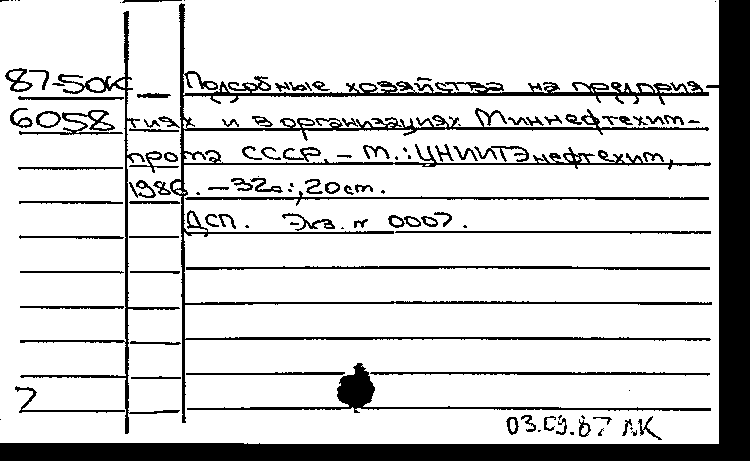 87-50К Подсобные хозяйства на предприя-
6058 тиях и в организациях Миннефтехим-
прома СССР. – М.: ЦНИИТЭнефтехим,
1986. – 32с.; 20 cm.
ДСП. Экз. № 0007.
7
03.09.87 ЛК